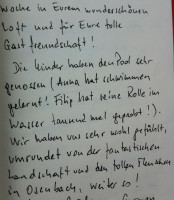 Woche in Eurem wunderschönen
Loft und für Eure tolle
Gastfreundschaft!
Die Kinder haben den Pool sehr
genossen (Anna hat schwimmen
gelernt! Filip hat seine Rolle im
Wasser tausend mal geprobt!).
Wir haben uns sehr wohl gefühlt,
umrundet von der fantastischen
Landschaft und den tollen Menschen
in Osenbach, weiter so!